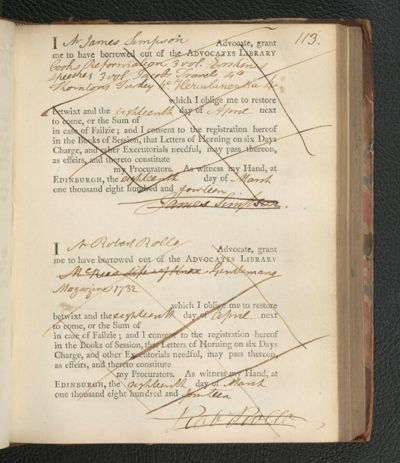 113.
I Mr James Simpson Advocate, grant
me to have borrowed out of the ADVOCATES LIBRARY
Books Reformation 3 vol. Erskine
Speeches 3 vol. Jacob Travels 4to
Thorntons Turkey 4o Herculanensia 4o
which I oblige me to restore
betwixt and the eighteenth day of April next
to come, or the Sum of
in case of Failzie; and I consent to the registration hereof
in the Books of Session, that Letters of Horning on six Days
Charge, and other Executorials needful, may pass thereon,
as effeirs, and thereto constitute
my Procurators. As witness my Hand, at
EDINBURGH, the eighteenth day of March
one thousand eight hundred and fourteen
James Simpson.
I Mr Robert Rollo Advocate, grant
me to have borrowed out of the ADVOCATES LIBRARY
McCries life of Knox Gentlemans
Magazine 1732
which I oblige me to restore
betwixt and the eighteenth day of April next
to come, or the Sum of
in case of Failzie; and I consent to the registration hereof
in the Books of Session, that Letters of Horning on six Days
Charge, and other Executorials needful, may pass thereon,
as effeirs, and thereto constitute
my Procurators. As witness my Hand, at
EDINBURGH, the eighteenth day of March
one thousand eight hundred and fourteen
Rob Rollo